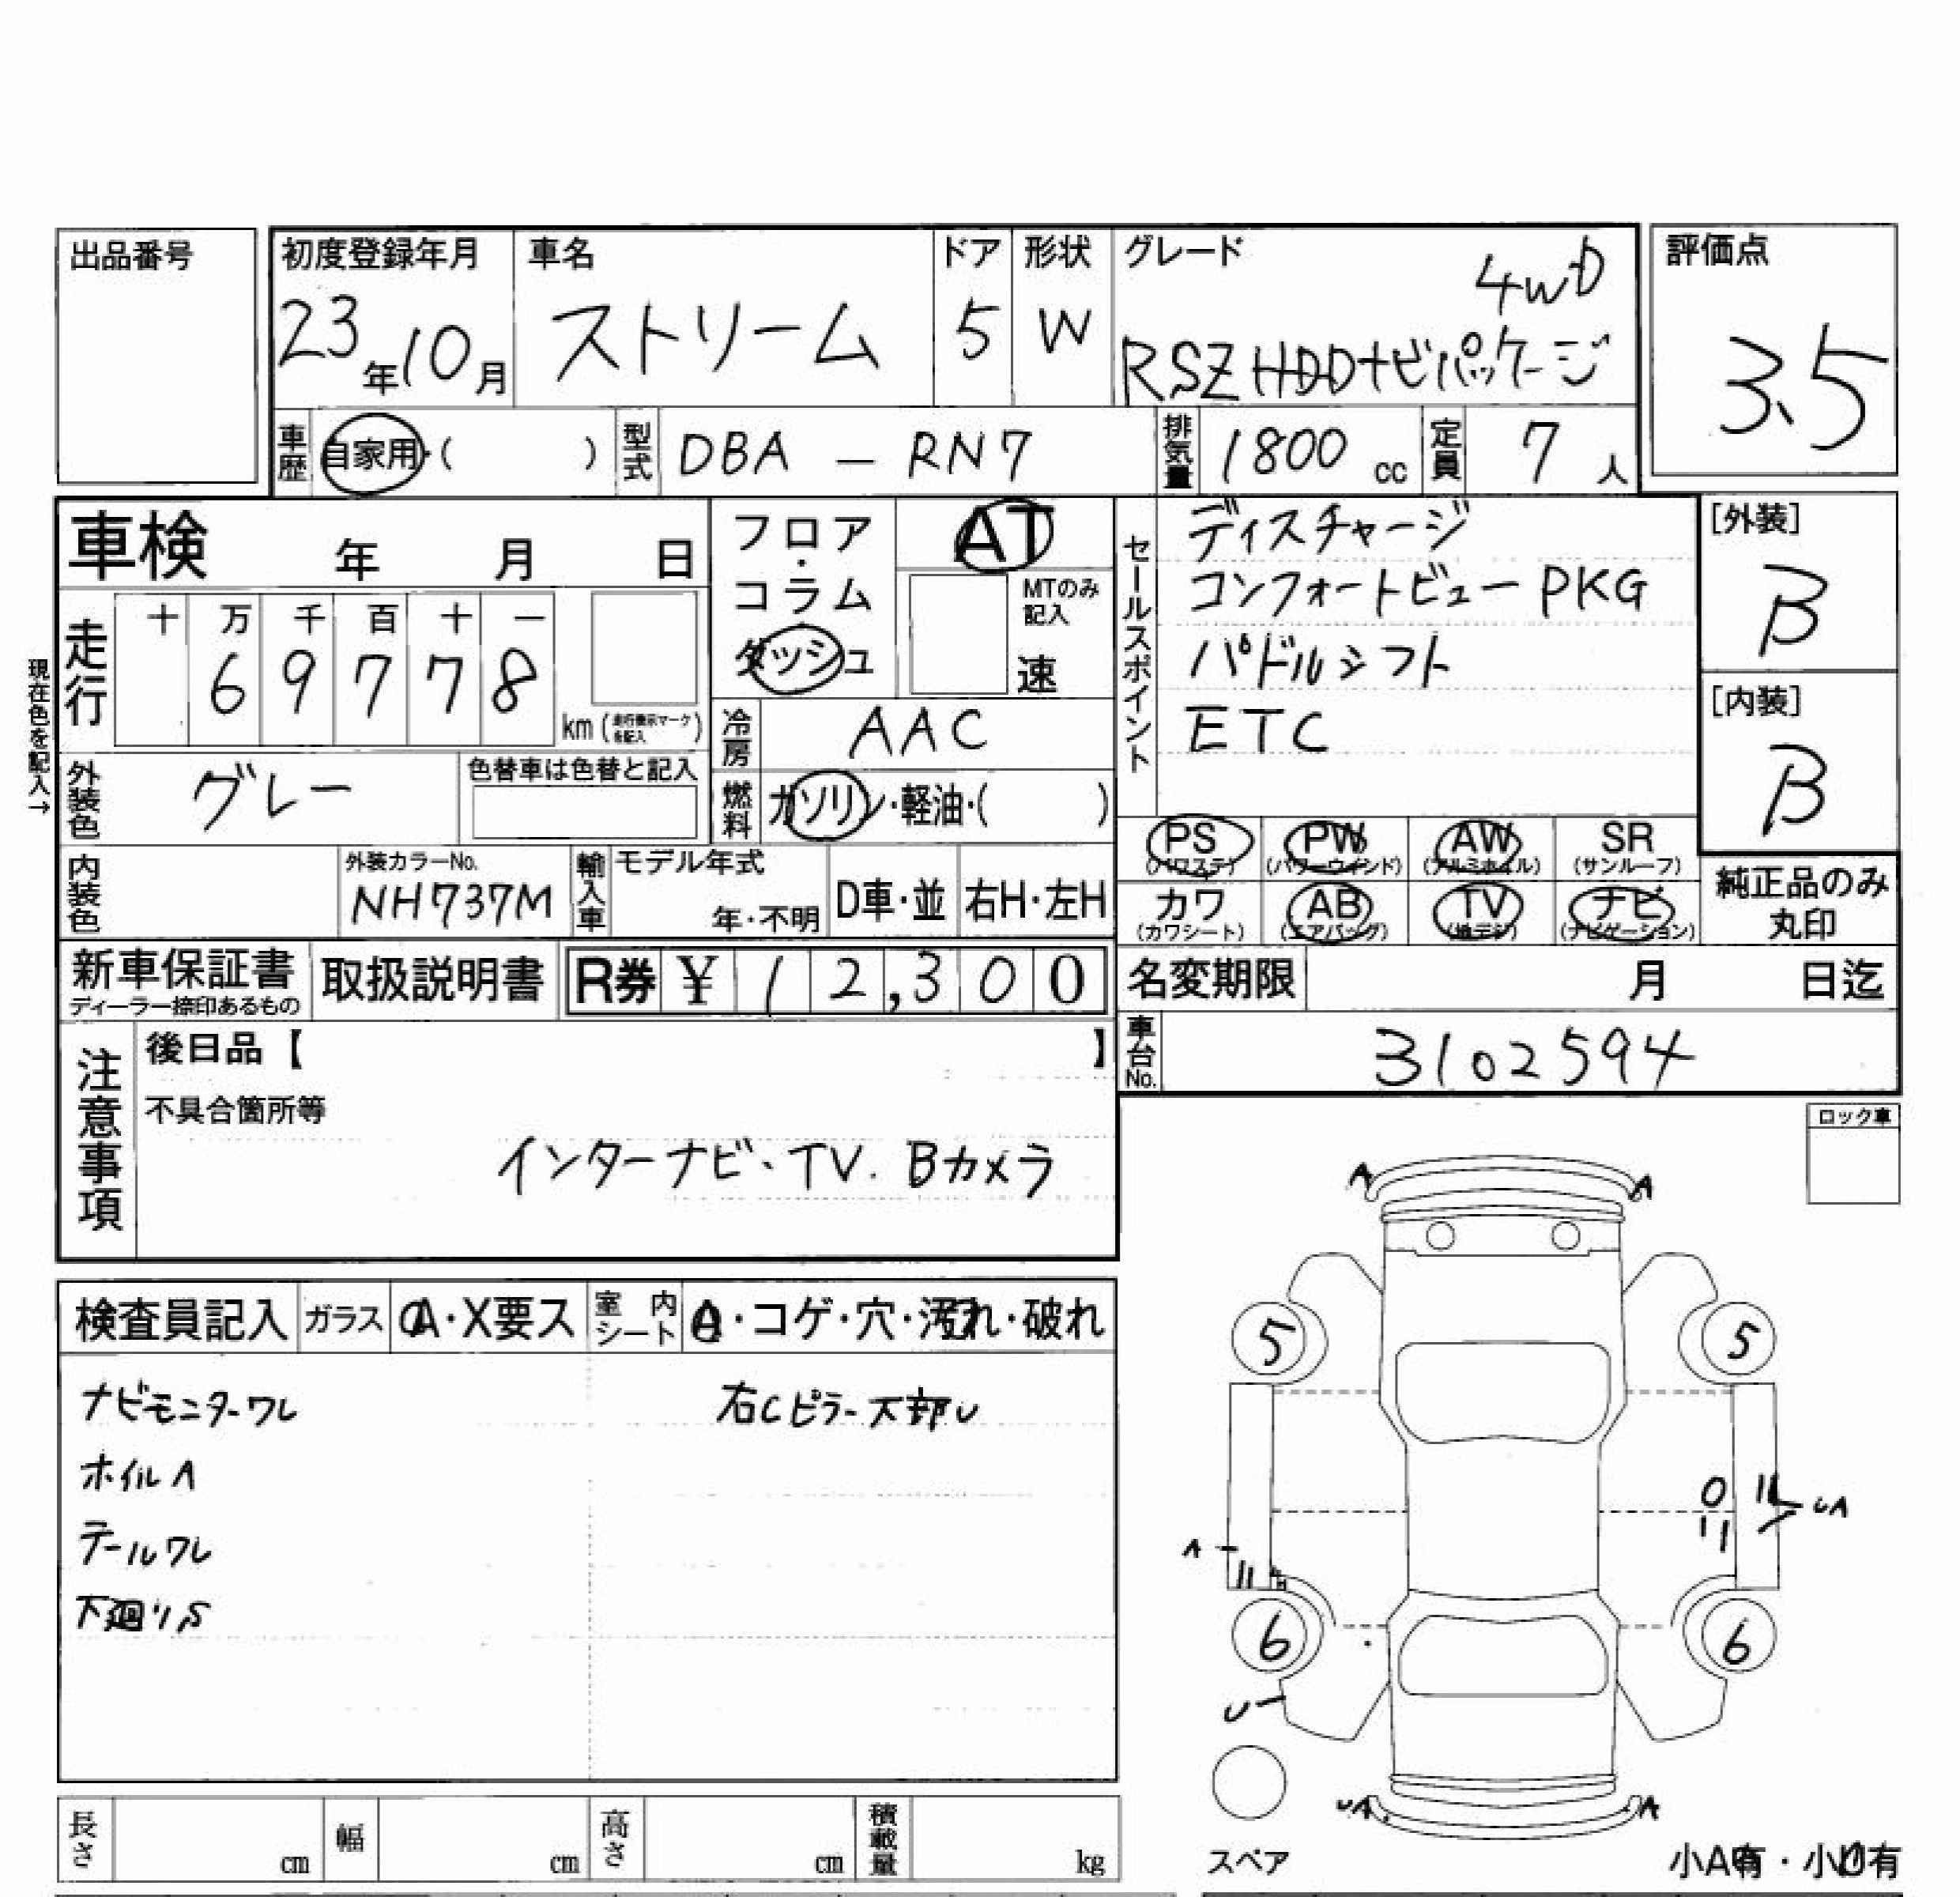 出品番号
初度登録年月 車名 ドア 形状 グレード 評価点
23年10月 ストリーム 5 W 4WD
RSZ HDDナビパッケージ 3.5
車歴 自家用・( ) 型式 DBA - RN7 排気量 1800 cc 定員 7 人
車検 年 月 日
フロア・コラム ダッシュ
AT
MTのみ記入
速
セールスポイント
ディスチャージ
コンフォートビューPKG
パドルシフト
ETC
[外装]
B
[内装]
B
現在色を記入→
走行 十 万 千 百 十 一
6 9 7 7 8
km (走行表示マークを記入)
冷房 AAC
外装色 グレー 色替車は色替と記入
燃料 ガソリン・軽油・( )
PS (パワステ) PW (パワーウインド) AW (アルミホイル) SR (サンルーフ)
カワ (カワシート) AB (エアバッグ) TV (地デジ) ナビ (ナビゲーション)
純正品のみ
丸印
内装色 外装カラーNo. NH737M 輸入車 モデル年式 年・不明 D車・並 右H・左H
新車保証書 ディーラー捺印あるもの 取扱説明書 R券 ¥ 12,300
名変期限 月 日迄
車台No. 3102594
注意事項
後日品【 】
不具合箇所等
インターナビ、TV. Bカメラ
ロック車
検査員記入 ガラス A・X要ス 室内シート A・コゲ・穴・汚れ・破れ
ナビモニターワレ 右Cピラー下部U
ホイルA
テールワレ
下廻りS
A A
5 5
UA
A
6 6
U
UA A
スペア 小A有・小U有
長さ cm 幅 cm 高さ cm 積載量 kg